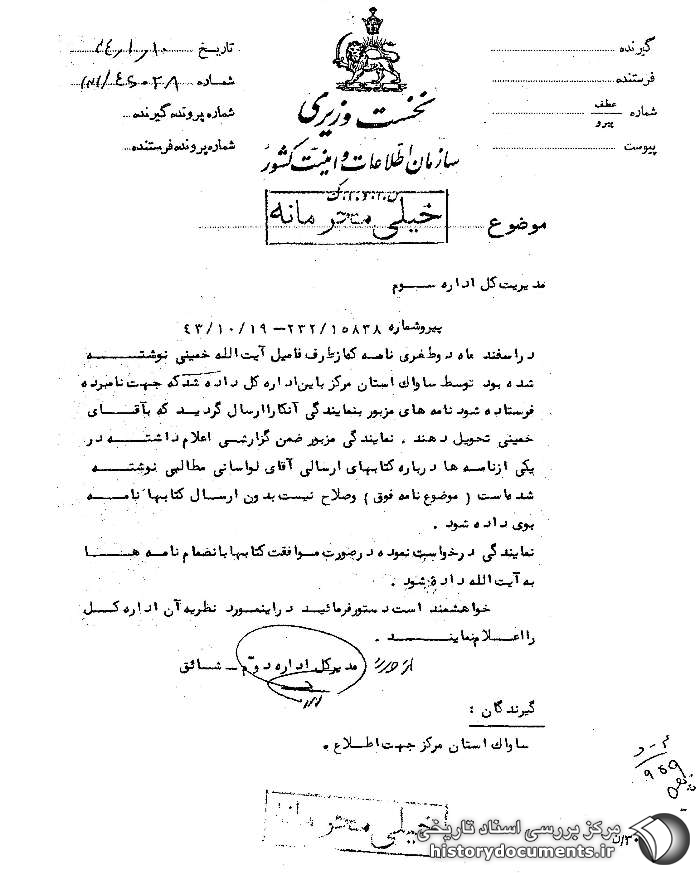 گیرنده
فرستنده
شماره عطف پیرو
پیوست
نخست وزیری
سازمان اطلاعات و امنیت کشور
تاریخ ۴۴/۱/۱۰
شماره
شماره پرونده گیرنده
شماره پرونده فرستنده
خیلی محرمانه
موضوع
مدیریت کل اداره سوم
پیروشماره ۲۳۲/۱۵۸۳۸ – ۴۳/۱۰/۱۹
در اسفند ماه دو طغری نامه که از طرف فامیل آیت الله خمینی نوشته
شده بود توسط ساواک استان مرکز باین اداره کل داده شد که جهت نامبرده
فرستاده شود نامه های مزبور بنمایندگی آنکارا ارسال گردید که بآقای
خمینی تحویل دهند . نمایندگی مزبور ضمن گزارشی اعلام داشته در
یکی از نامه ها درباره کتابهای ارسالی آقای لواسانی مطالبی نوشته
شده است ( موضوع نامه فوق ) وصلاح نیست بدون ارسال کتابها نامه
بوی داده شود .
نمایندگی درخواست نموده در صورت موافقت کتابها بانضمام نامه ها
به آیت الله داده شود .
خواهشمند است دستور فرمائید در اینمورد نظریه آن اداره کل
را اعلام نمایند .
مدیر کل اداره دوم – شائق
گیرندگان :
ساواک استان مرکز جهت اطلاع .
خیلی محرمانه
مرکز بررسی اسناد تاریخی
historydocuments.ir